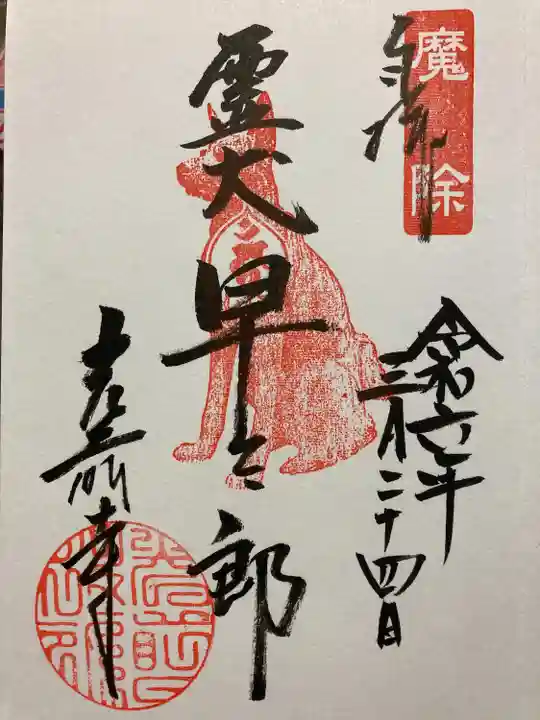 奉拝
魔除
令和六年
三月二十四日
霊犬早太郎
光前寺